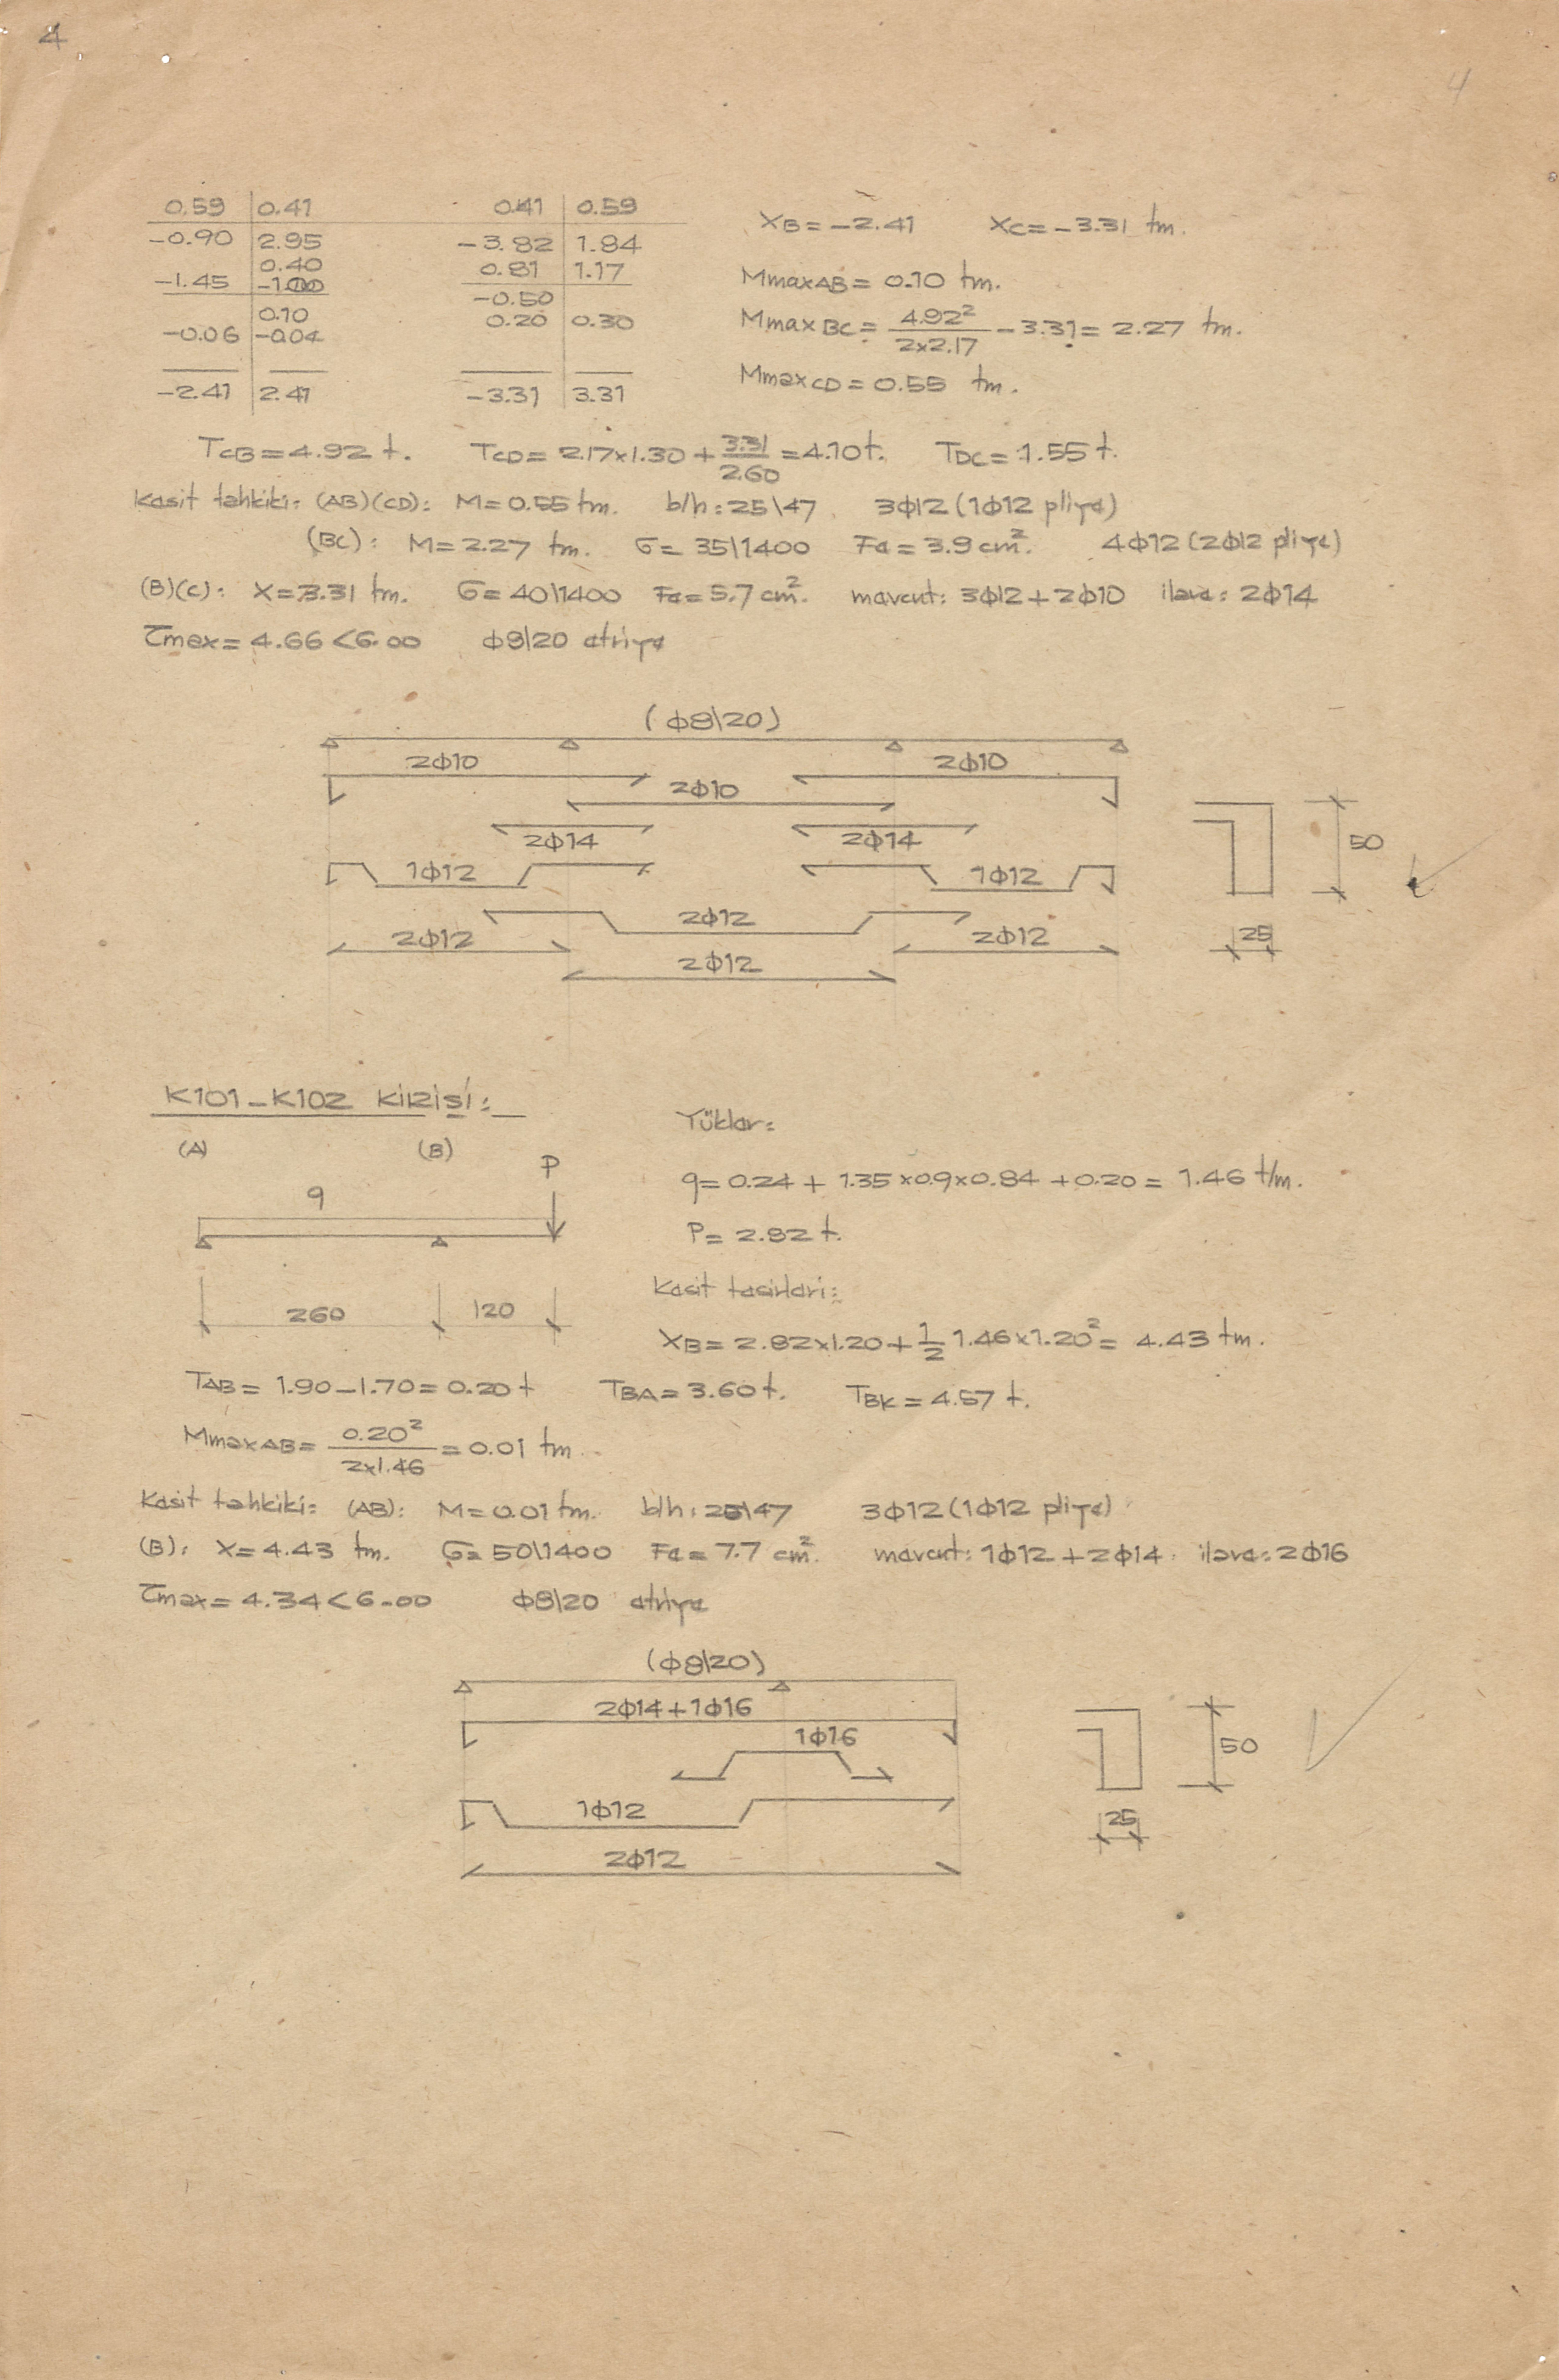 4
4
0.59 0.41 0.41 0.59
-0.90 2.95 -3.82 1.84
0.40 0.81 1.17
-1.45 -1.00 -0.50
0.10 0.20 0.30
-0.06 -0.04
-2.41 2.41 -3.31 3.31
XB = -2.41 XC = -3.31 tm.
MmaxAB = 0.10 tm.
MmaxBC = 4.92²/2x2.17 - 3.31 = 2.27 tm.
MmaxCD = 0.55 tm.
TCB = 4.92 t. TCD = 2.17x1.30 + 3.31/2.60 = 4.10 t. TDC = 1.55 t.
Kesit tahkiki: (AB)(CD): M = 0.55 tm. b/h: 25\47. 3Φ12 (1Φ12 pliye)
(BC): M = 2.27 tm. G = 35\1400 Fe = 3.9 cm². 4Φ12 (2Φ12 pliye)
(B)(C): X = 3.31 tm. G = 40\1400 Fe = 5.7 cm². mevcut: 3Φ12 + 2Φ10 ilave: 2Φ14
τmax = 4.66 < 6.00 Φ8\20 etriye
(Φ8\20)
2Φ10 2Φ10
2Φ10
2Φ14 2Φ14
1Φ12 1Φ12
50
2Φ12
2Φ12 2Φ12
25
2Φ12
K101 - K102 KİRİŞİ:
(A) (B) P
q
260 120
Yükler:
q = 0.24 + 1.35x0.9x0.84 + 0.20 = 1.46 t/m.
P = 2.82 t.
Kesit tesirleri:
XB = 2.82x1.20 + 1/2 1.46x1.20² = 4.43 tm.
TAB = 1.90 - 1.70 = 0.20 t TBA = 3.60 t. TBK = 4.57 t.
MmaxAB = 0.20²/2x1.46 = 0.01 tm.
Kesit tahkiki: (AB): M = 0.01 tm. b/h: 25\47 3Φ12 (1Φ12 pliye)
(B): X = 4.43 tm. G = 50\1400 Fe = 7.7 cm². mevcut: 1Φ12 + 2Φ14. ilave: 2Φ16
τmax = 4.34 < 6.00 Φ8\20 etriye
(Φ8\20)
2Φ14 + 1Φ16
1Φ16
50
1Φ12
25
2Φ12